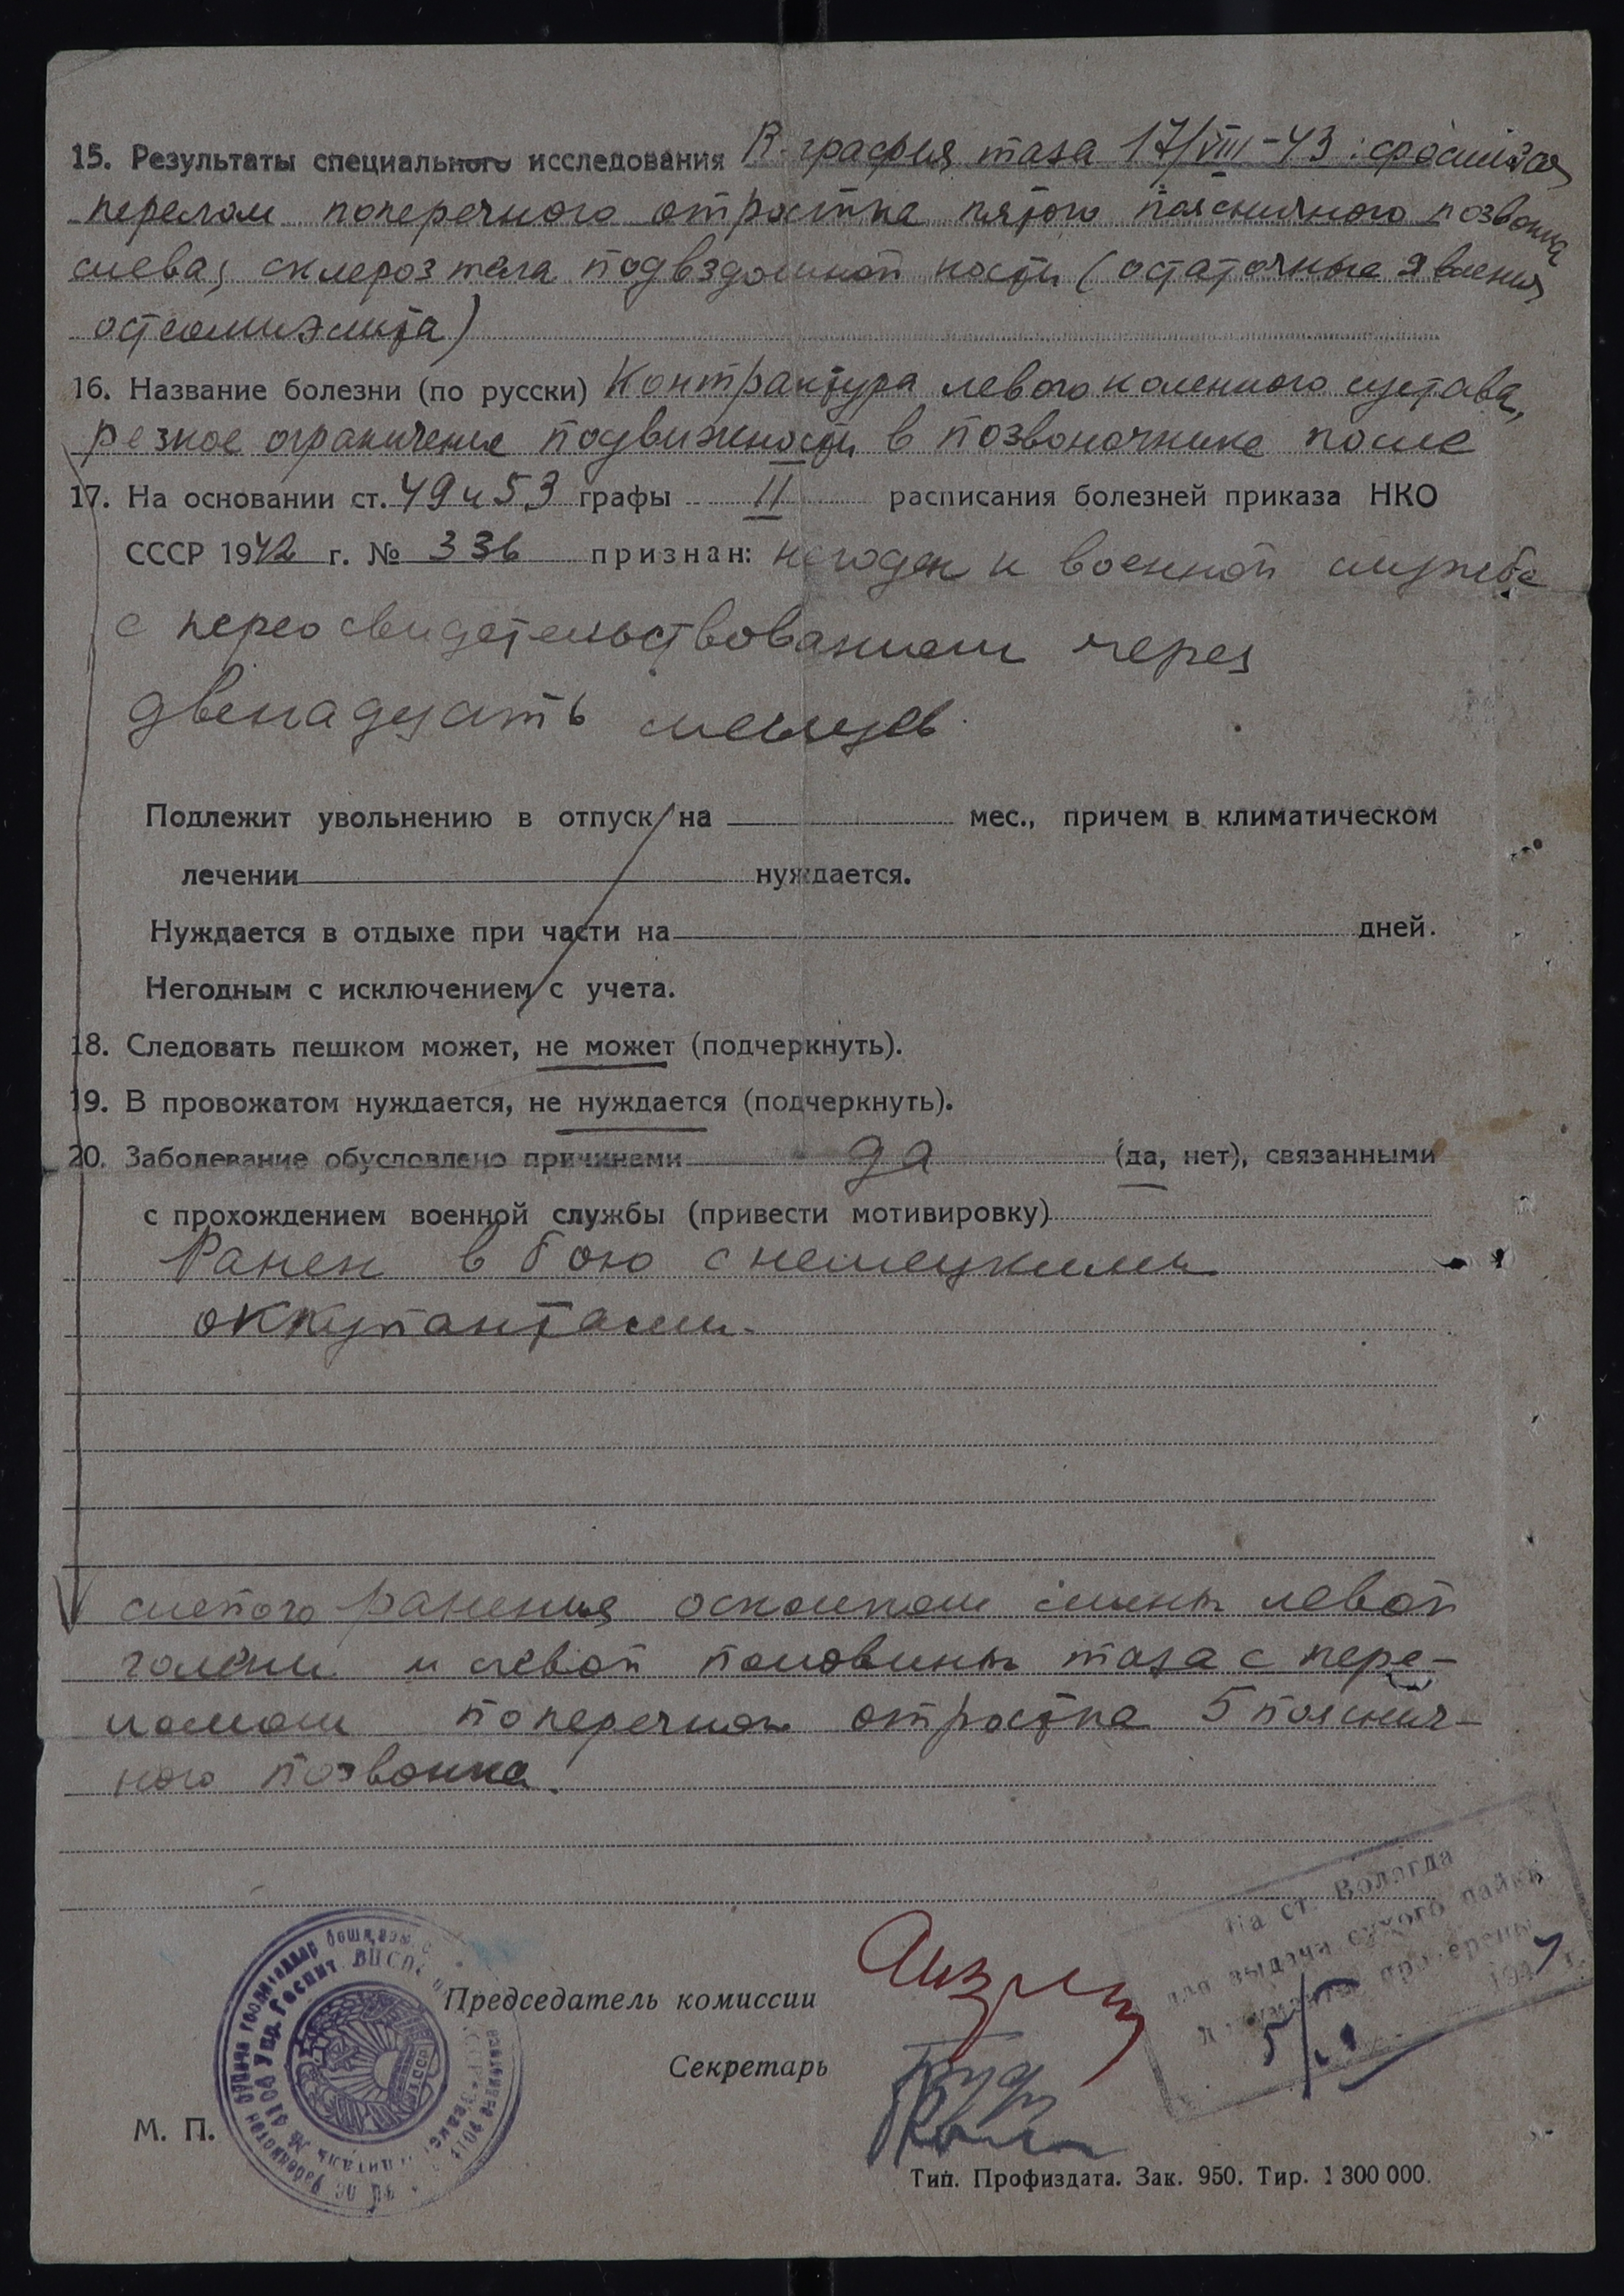 15. Результаты специального исследования R-графия таза 17/VIII-43: сросшийся
перелом поперечного отростка пятого поясничного позвонка
слева, склероз тела подвздошной кости (остаточные явления
остеомиэлита)
16. Название болезни (по русски) Контрактура левого коленного сустава,
резкое ограничение подвижности в позвоночнике после
17. На основании ст. 49 и 53 графы II расписания болезней приказа НКО
СССР 1942 г. № 336 признан: негоден к военной службе
с переосвидетельствованием через
двенадцать месяцев.
Подлежит увольнению в отпуск на мес., причем в климатическом
лечении нуждается.
Нуждается в отдыхе при части на дней.
Негодным с исключением с учета.
18. Следовать пешком может, не может (подчеркнуть).
19. В провожатом нуждается, не нуждается (подчеркнуть).
20. Заболевание обусловлено причинами да (да, нет), связанными
с прохождением военной службы (привести мотивировку)
Ранен в бою с немецкими
оккупантами.
слепого ранения осколком мины левой
голени и левой половины таза с пере-
ломом поперечного отростка 5 пояснич-
ного позвонка.
На ст. Вологда
для выдачи сухого пайка
Председатель комиссии
Секретарь
М. П.
Тип. Профиздата. Зак. 950. Тир. 1 300 000.